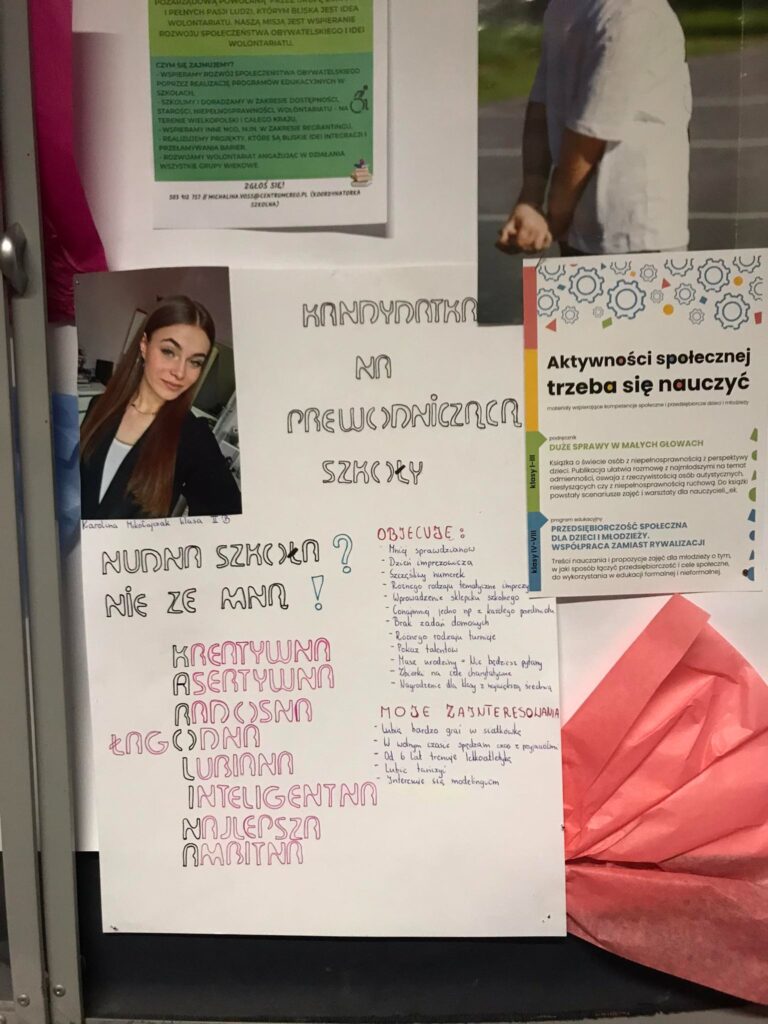 POZARZĄDOWĄ POWOŁANĄ PRZEZ GRUPĘ
I PEŁNYCH PASJI LUDZI, KTÓRYM BLISKA JEST IDEA
WOLONTARIATU. NASZĄ MISJĄ JEST WSPIERANIE
ROZWOJU SPOŁECZEŃSTWA OBYWATELSKIEGO I IDEI
WOLONTARIATU.
CZYM SIĘ ZAJMUJEMY?
- WSPIERAMY ROZWÓJ SPOŁECZEŃSTWA OBYWATELSKIEGO
POPRZEZ REALIZACJĘ PROGRAMÓW EDUKACYJNYCH W
SZKOŁACH,
- SZKOLIMY I DORADZAMY W ZAKRESIE DOSTĘPNOŚCI,
STAROŚCI, NIEPEŁNOSPRAWNOŚCI, WOLONTARIATU - NA
TERENIE WIELKOPOLSKI I CAŁEGO KRAJU,
- WSPIERAMY INNE NGO, M.IN. W ZAKRESIE REGRANTINGU,
- REALIZUJEMY PROJEKTY, KTÓRE SĄ BLISKIE IDEI INTEGRACJI I
PRZEŁAMYWANIA BARIER,
- ROZWIJAMY WOLONTARIAT ANGAŻUJĄC W DZIAŁANIA
WSZYSTKIE GRUPY WIEKOWE.
ZGŁOŚ SIĘ!
503 912 757 // MICHALINA.VOSS@CENTRUMCREO.PL (KOORDYNATORKA
SZKOLNA)
KANDYDATKA
NA
PREWODNICZĄCĄ
SZKOŁY
Karolina Mikołajczak klasa
NUDNA SZKOŁA ?
NIE ZE MNĄ !
KREATYWNA
ASERTYWNA
RADOSNA
ŁAGODNA
LUBIANA
INTELIGENTNA
NAJLEPSZA
AMBITNA
OBIECUJE:
- Mniej sprawdzianów
- Dzień imprezowicza
- Szczęśliwy numerek
- Rożnego rodzaju tematyczne imprezy
- Wprowadzenie sklepiku szkolnego
- jedno np z każdego przedmiotu
- Brak zadań domowych
- Rożnego rodzaju turnieje
- Pokaz talentów
- Masz urodziny = Nie będziesz pytany
- Zbiórki na cele charytatywne
- Nagrodzenie dla klasy z największą średnią
MOJE ZAINTERESOWANIA
- Lubię bardzo grać w siatkówkę
- W wolnym czasie spędzam czas z przyjaciółmi
- Od 6 lat trenuje lekkoatletykę
- Lubię tańczyć
- Interesuje się modelingiem
Aktywności społecznej
trzeba się nauczyć
materiały wspierające kompetencje społeczne i przedsiębiorcze dzieci i młodzieży
klasy I-III
podręcznik
DUŻE SPRAWY W MAŁYCH GŁOWACH
Książka o świecie osób z niepełnosprawnością z perspektywy
dzieci. Publikacja ułatwia rozmowę z najmłodszymi na temat
odmienności, oswaja z rzeczywistością osób autystycznych,
niesłyszących czy z niepełnosprawnością ruchową. Do książki
powstały scenariusze zajęć i warsztaty dla nauczycieli_ek.
klasy IV-VIII
program edukacyjny
PRZEDSIĘBIORCZOŚĆ SPOŁECZNA
DLA DZIECI I MŁODZIEŻY.
WSPÓŁPRACA ZAMIAST RYWALIZACJI
Treści nauczania i propozycje zajęć dla młodzieży o tym,
w jaki sposób łączyć przedsiębiorczość i cele społeczne,
do wykorzystania w edukacji formalnej i nieformalnej.